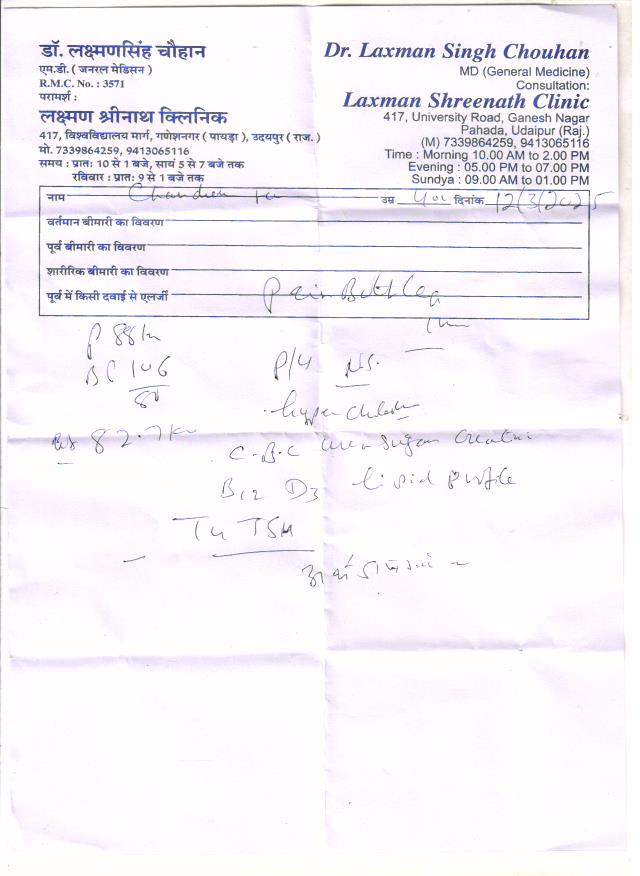 डॉ. लक्ष्मणसिंह चौहान
एम.डी. ( जनरल मेडिसन )
R.M.C. No. : 3571
परामर्श :
लक्ष्मण श्रीनाथ क्लिनिक
417, विश्वविद्यालय मार्ग, गणेशनगर ( पायड़ा ), उदयपुर ( राज. )
मो. 7339864259, 9413065116
समय : प्रातः 10 से 1 बजे, सायं 5 से 7 बजे तक
रविवार : प्रातः 9 से 1 बजे तक
Dr. Laxman Singh Chouhan
MD (General Medicine)
Consultation:
Laxman Shreenath Clinic
417, University Road, Ganesh Nagar
Pahada, Udaipur (Raj.)
(M) 7339864259, 9413065116
Time : Morning 10.00 AM to 2.00 PM
Evening : 05.00 PM to 07.00 PM
Sundya : 09.00 AM to 01.00 PM
नाम उम्र दिनांक 12/3/2025
वर्तमान बीमारी का विवरण
पूर्व बीमारी का विवरण
शारीरिक बीमारी का विवरण
पूर्व में किसी दवाई से एलर्जी
Pain Both Leg
P 88/m
BP 106
80
82.7 Kg
C.B.C Urea Sugar Creatinine
B12 D3 Lipid profile
T4 TSH